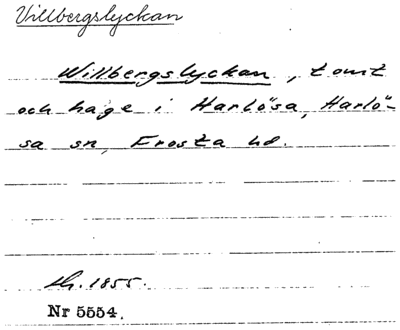 Villbergslyckan
Willbergslyckan, tomt
och hage i Harlösa, Harlö-
sa sn, Frosta hd.
1855.
Nr 5554.